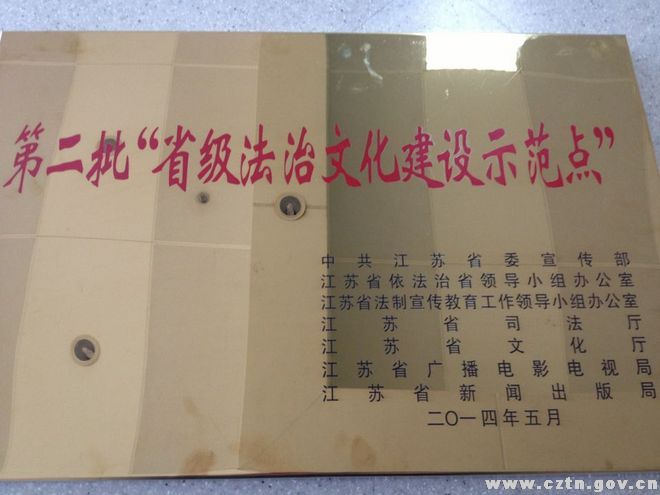 第二批“省级法治文化建设示范点”
中共江苏省委宣传部
江苏省依法治省领导小组办公室
江苏省法制宣传教育工作领导小组办公室
江苏省司法厅
江苏省文化厅
江苏省广播电影电视局
江苏省新闻出版局
二〇一四年五月
www.cztn.gov.cn